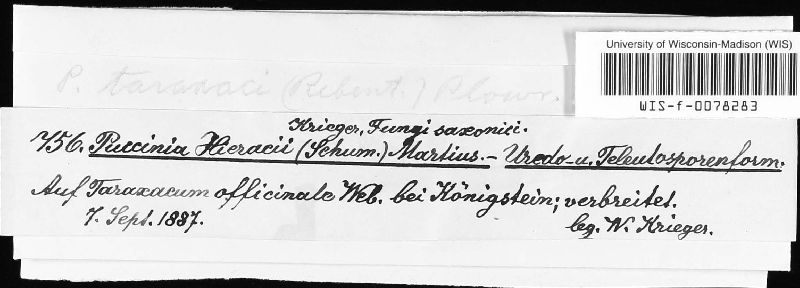 University of Wisconsin-Madison (WIS)
WIS-f-0078283
P. taraxaci (Rebent.) Plowr.
Krieger, Fungi saxonici.
756. Puccinia Hieracii (Schum.) Martius. – Uredo- u. Teleutosporenform.
Auf Taraxacum officinale Web. bei Königstein; verbreitet.
7. Sept. 1887.
leg. W. Krieger.